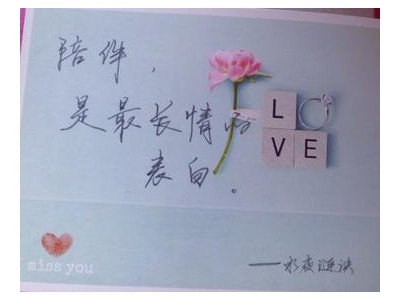 陪伴，
是最长情的
表白。
L
VE
miss you